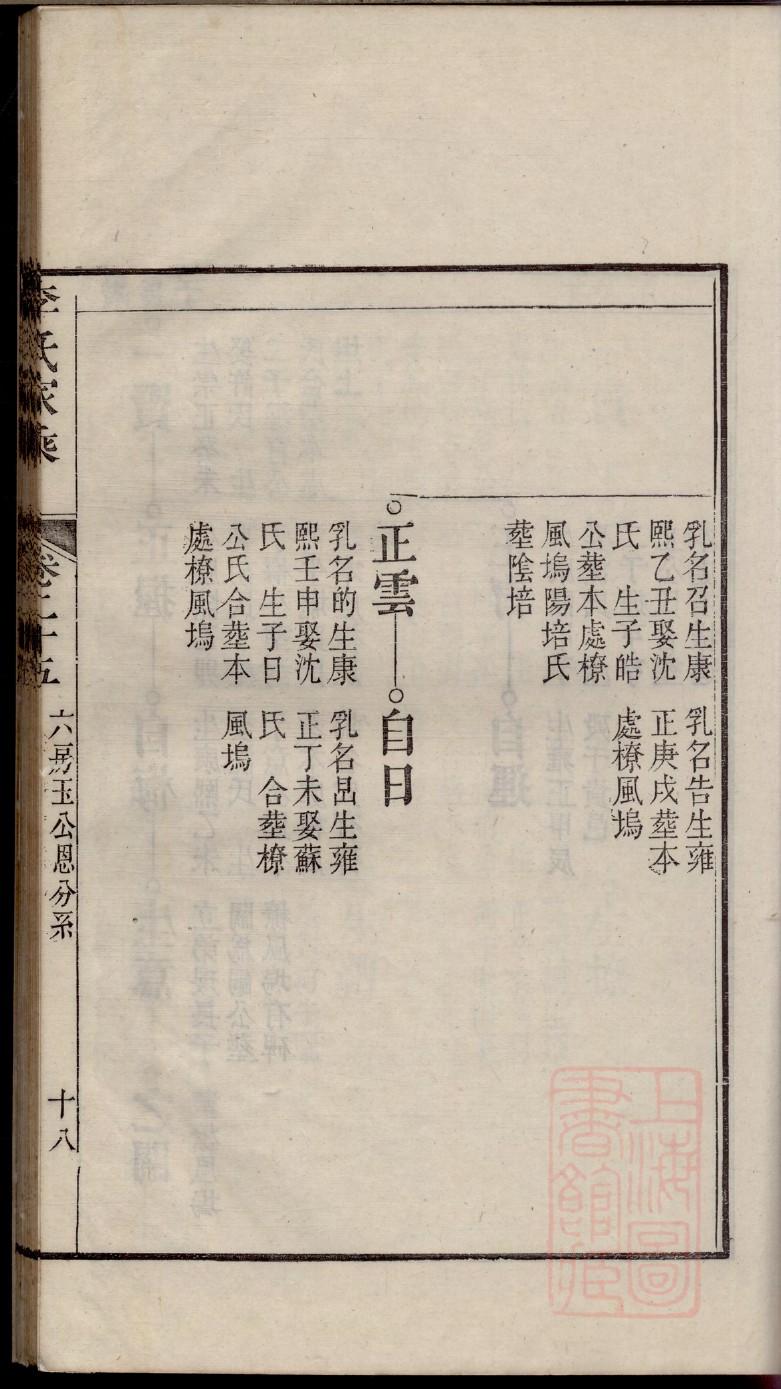 乳名召生康
熙乙丑娶沈
氏　生子皓
公塟本處橑
風塢陽培氏
塟陰培
乳名告生雍
正庚戌塟本
處橑風塢
正雲
乳名的生康
熙壬申娶沈
氏　生子日
公氏合塟本
處橑風塢
自日
乳名旵生雍
正丁未娶蘇
氏　合塟橑
風塢
李氏家乘
卷二十五
六房玉公恩分系
十八
上海圖書館藏